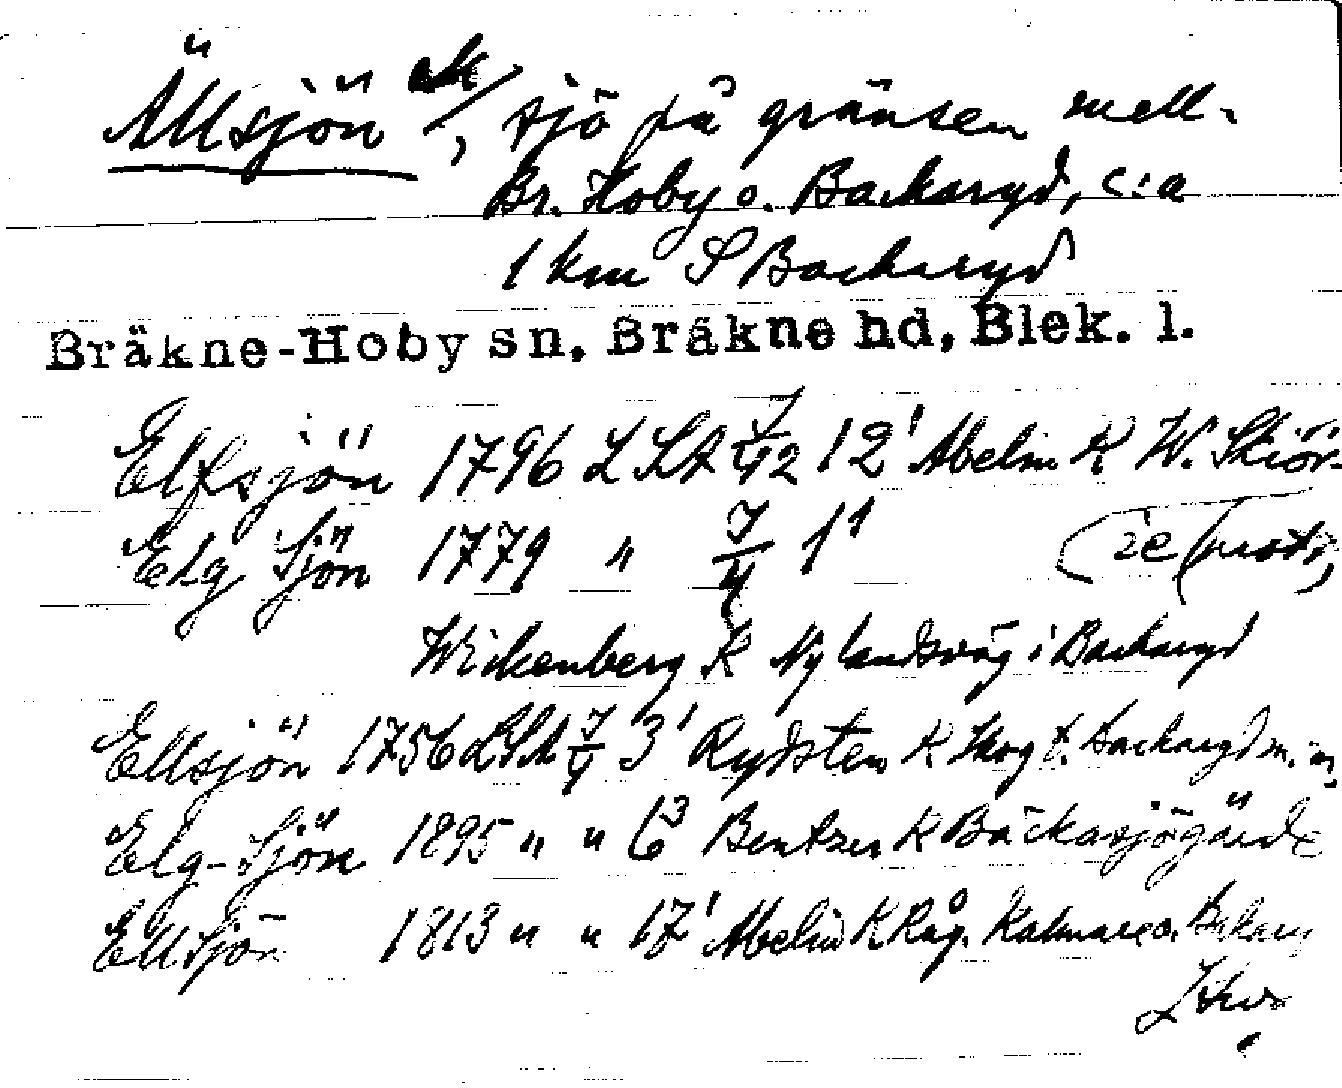 Ällsjön, sjö på gränsen mell.
Br. Hoby o. Backaryd, c:a
1 km S Backaryd
Bräkne-Hoby sn, Bräkne hd, Blek. l.
Elfsjön 1796 LSA 12¹ Abelin K W.
Elg Sjön 1779 " 7/4 1¹
Wickenberg K Nylandsväg i Backaryd
Ellsjön 1756 LSA 7/4 3¹ Rydsten K Skog t. Backaryd m. m.
Elg-Sjön 1895 " " 6³ Bentzer K Bäckasjögärde
Ellsjön 1813 " " 17¹ Abelin K Råg.